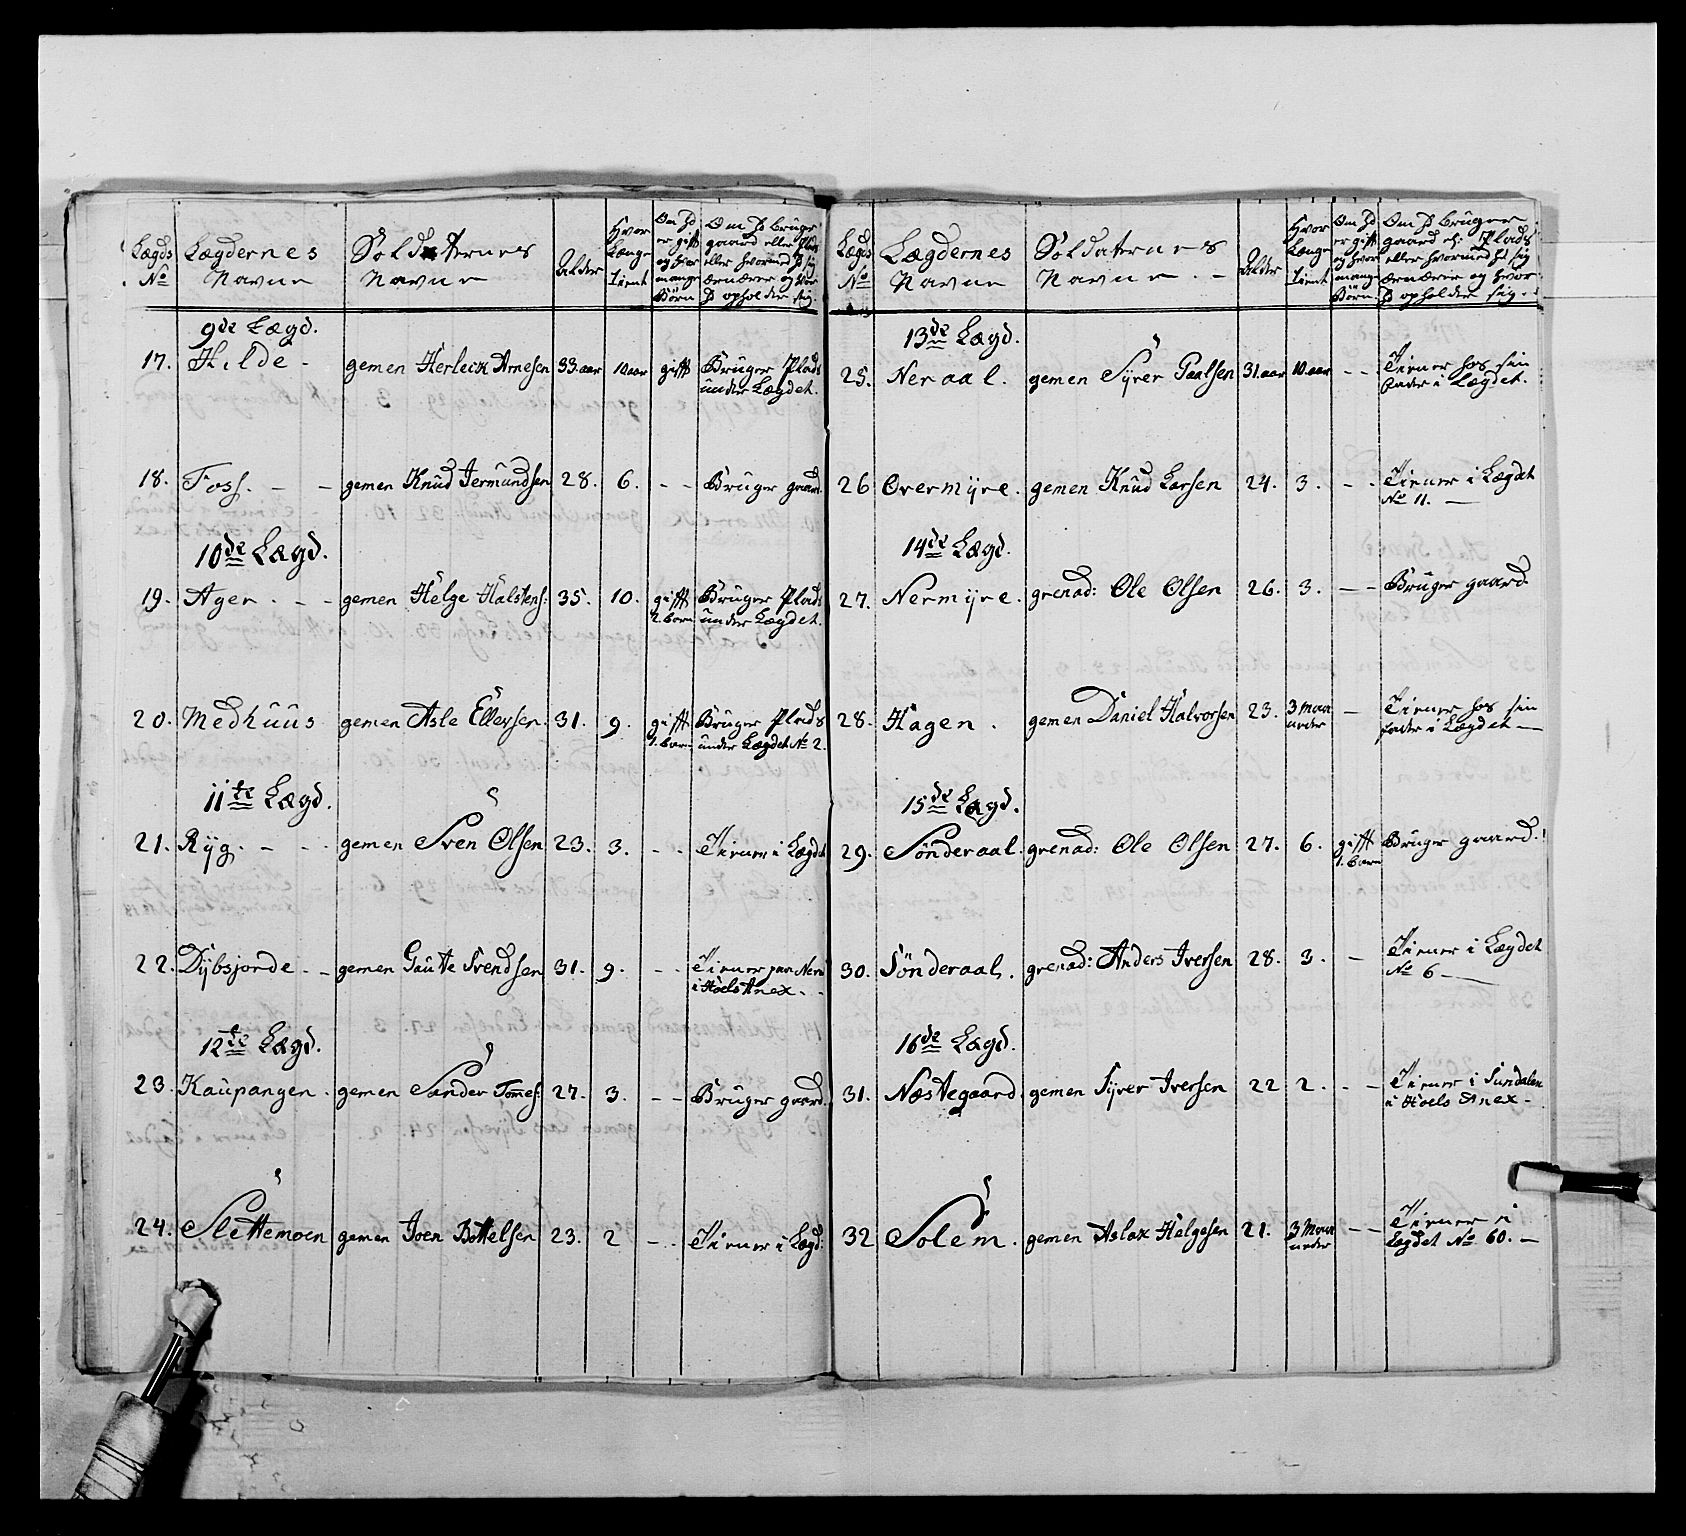 Lægds No | Lægdernes Navne | Soldaternes Navne | Alder | Hvor Længe Tient | Om Hd er gift og hvor mange Børn | Om Hd Bruger gaard eller Plads eller hvormed Hd sig ernærer og hvor Hd opholder sig.
9de Lægd.
17. Hilde - gemen Herleck Arnesen 33. aar 10 aar gift Bruger Plads
under Lægdet.
18. Foss. - - gemen Knud Jermundsen 28. 6. - - Bruger gaard.
10de Lægd.
19. Ager. - - gemen Helge Halstens: 35. 10. gifft Bruger Plads
2. barn under Lægdet.
20. Medhuus gemen Asle Ellevsen. 31. 9. gift Bruger Plads
1. barn under Lægdet No 2.
11te Lægd.
21. Ryg. - - gemen Sven Olsen 23. 3. - - Tiener i Lægdet
22. Dybsjorde - - gemen Gaute Svendsen 31. 9. - - Tiener paa Nere
i Hoels Anex. -
12te Lægd.
23. Kaupangen. gemen Sander Tomes: 27. 3. - - Bruger gaard.
24. Slettemoen gemen Joen Bottelsen 23. 2 - - Tiener i Lægd:
Lægds No | Lægdernes Navne | Soldaternes Navne. - | Alder | Hvor Længe Tient | Om Hd er gift og hvor mange Børn | Om Hd Bruger gaard el: Plads eller hvormed Hd sig ernærer og hvor Hd opholder sig. -
13de Lægd.
25. Neraal. gemen Syver Paalsen 31. aar 10. aar - - Tiener hos sin
fader i Lægdet.
26 Overmyre. gemen Knud Larsen 24. 3. - - Tiener i Lægdet
No 11. -
14de Lægd.
27. Nermyre. grenad: Ole Olsen 26. 3. - - Bruger gaard
28. Hagen. gemen Daniel Halvorsen 23. 3 Maan - Tiener hos sin
fader i Lægdet -
15de Lægd.
29. Sönderaal. grenad: Ole Olsen 27. 6. gifft Bruger gaard.
1. barn
30. Sönderaal. grenad: Anders Iversen 28. 3. - Tiener i Lægdet
No 6 -
16de Lægd.
31. Næstegaard. gemen Syver Iversen 22 2. - - Tiener i Sundalen
i Hoels Anex -
32 Solem. gemen Aslak Helgesen 21. 3 Maan - - Tiener i
Lægdet No 60. -